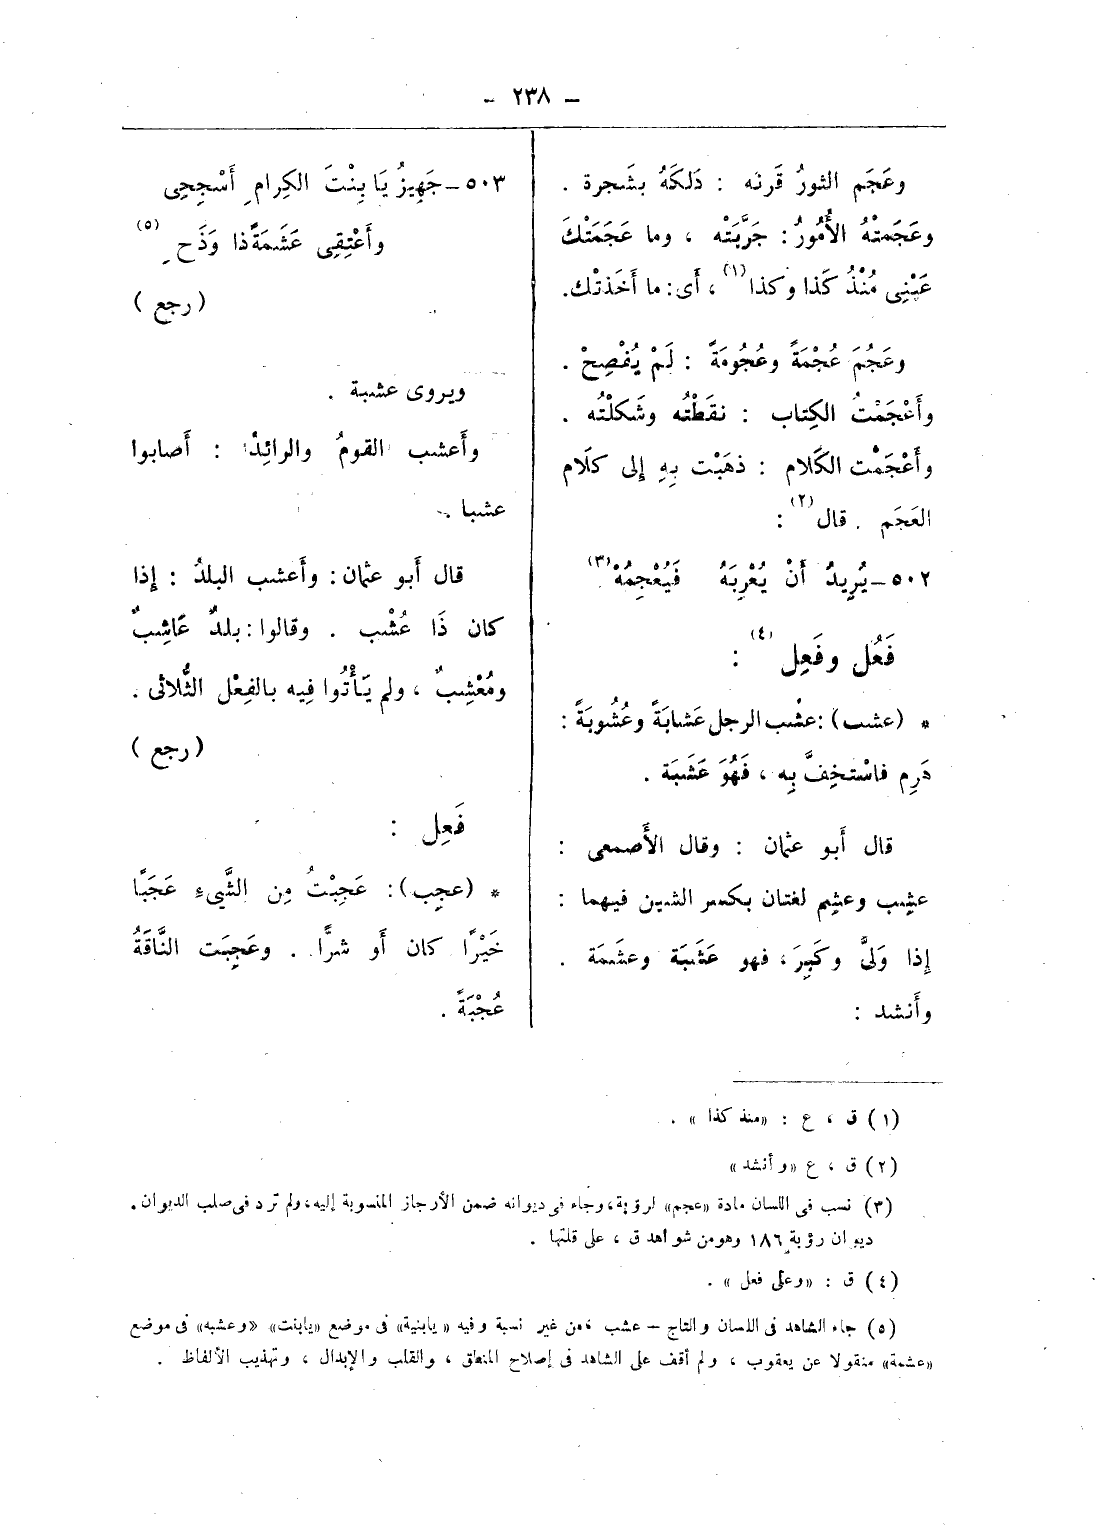 — ٢٣٨ —
وعَجَم الثورُ قَرنه : دَلكَهُ بشَجرة .
وعَجَمتْهُ الأُمُورُ : جَرَّبَتْه ، وما عَجَمَتْكَ
عَيْنِى مُنْذُ كَذا وكذا (١) ، أَى : ما أَخَذتْك.
وعَجُمَ عُجْمَةً وعُجُومَةً : لَمْ يُفْصِحْ .
وأَعْجَمْتُ الكِتاب : نقَطْتُه وشَكلْتُه .
وأَعْجَمْت الكَلام : ذهَبْت بِهِ إلى كلَام
العَجَم . قال (٢) :
٥٠٢ــ يُرِيدُ أَنْ يُعْرِبَهُ فَيُعْجِمُهْ (٣)
فَعُل وفَعِل (٤) :
* (عشب) : عشْب الرجل عَشابَةً وعُشُوبَةً :
هَرِم فاسْتخِفَّ بِه ، فَهُوَ عَشَبَة .
قال أَبو عثمان : وقال الأَصمعى :
عشِب وعشِم لغتان بكسر الشين فيهما :
إذا وَلىَّ وكَبِرَ ، فهو عَشَبَة وعشَمَة .
وأَنشد :
٥٠٣ــ جَهِيزُ يَا بِنْتَ الكِرامِ أَسْجِحِى
وأَعْتِقِى عَشَمَةً ذا وَذَحِ (٥)
( رجع )
ويروى عشبة .
وأَعشب القومُ والرائِدُ : أَصابوا
عشبا .
قال أَبو عثمان : وأَعشب البلدُ : إذا
كان ذَا عُشْب . وقالوا : بلدٌ عَاشِبٌ
ومُعْشِبٌ ، ولم يَأْتُوا فِيه بالفِعْل الثُّلاثى .
( رجع )
فَعِل :
* (عجِب) : عَجِبْتُ مِن الشَّىءِ عَجَبًا
خَيْرًا كان أَو شرًّا . وعَجِبَت النَّاقَةُ
عُجْبَةً .
(١) ق ، ع : «منذ كذا » .
(٢) ق ، ع «وأنشد»
(٣) نسب فى اللسان مادة «عجم» لرؤبة ، وجاء فى ديوانه ضمن الأرجاز المنسوبة إليه ، ولم ترد فى صلب الديوان .
ديوان رؤبة ١٨٦ وهو من شواهد ق ، على قلتها .
(٤) ق : «وعلى فعل » .
(٥) جاء الشاهد فى اللسان والتاج – عشب من غير نسبة وفيه « يابنية» فى موضع «يابنت» «وعشبه» فى موضع
«عشمة» منقولا عن يعقوب ، ولم أقف على الشاهد فى إصلاح المنطق ، والقلب والإبدال ، وتهذيب الألفاظ .